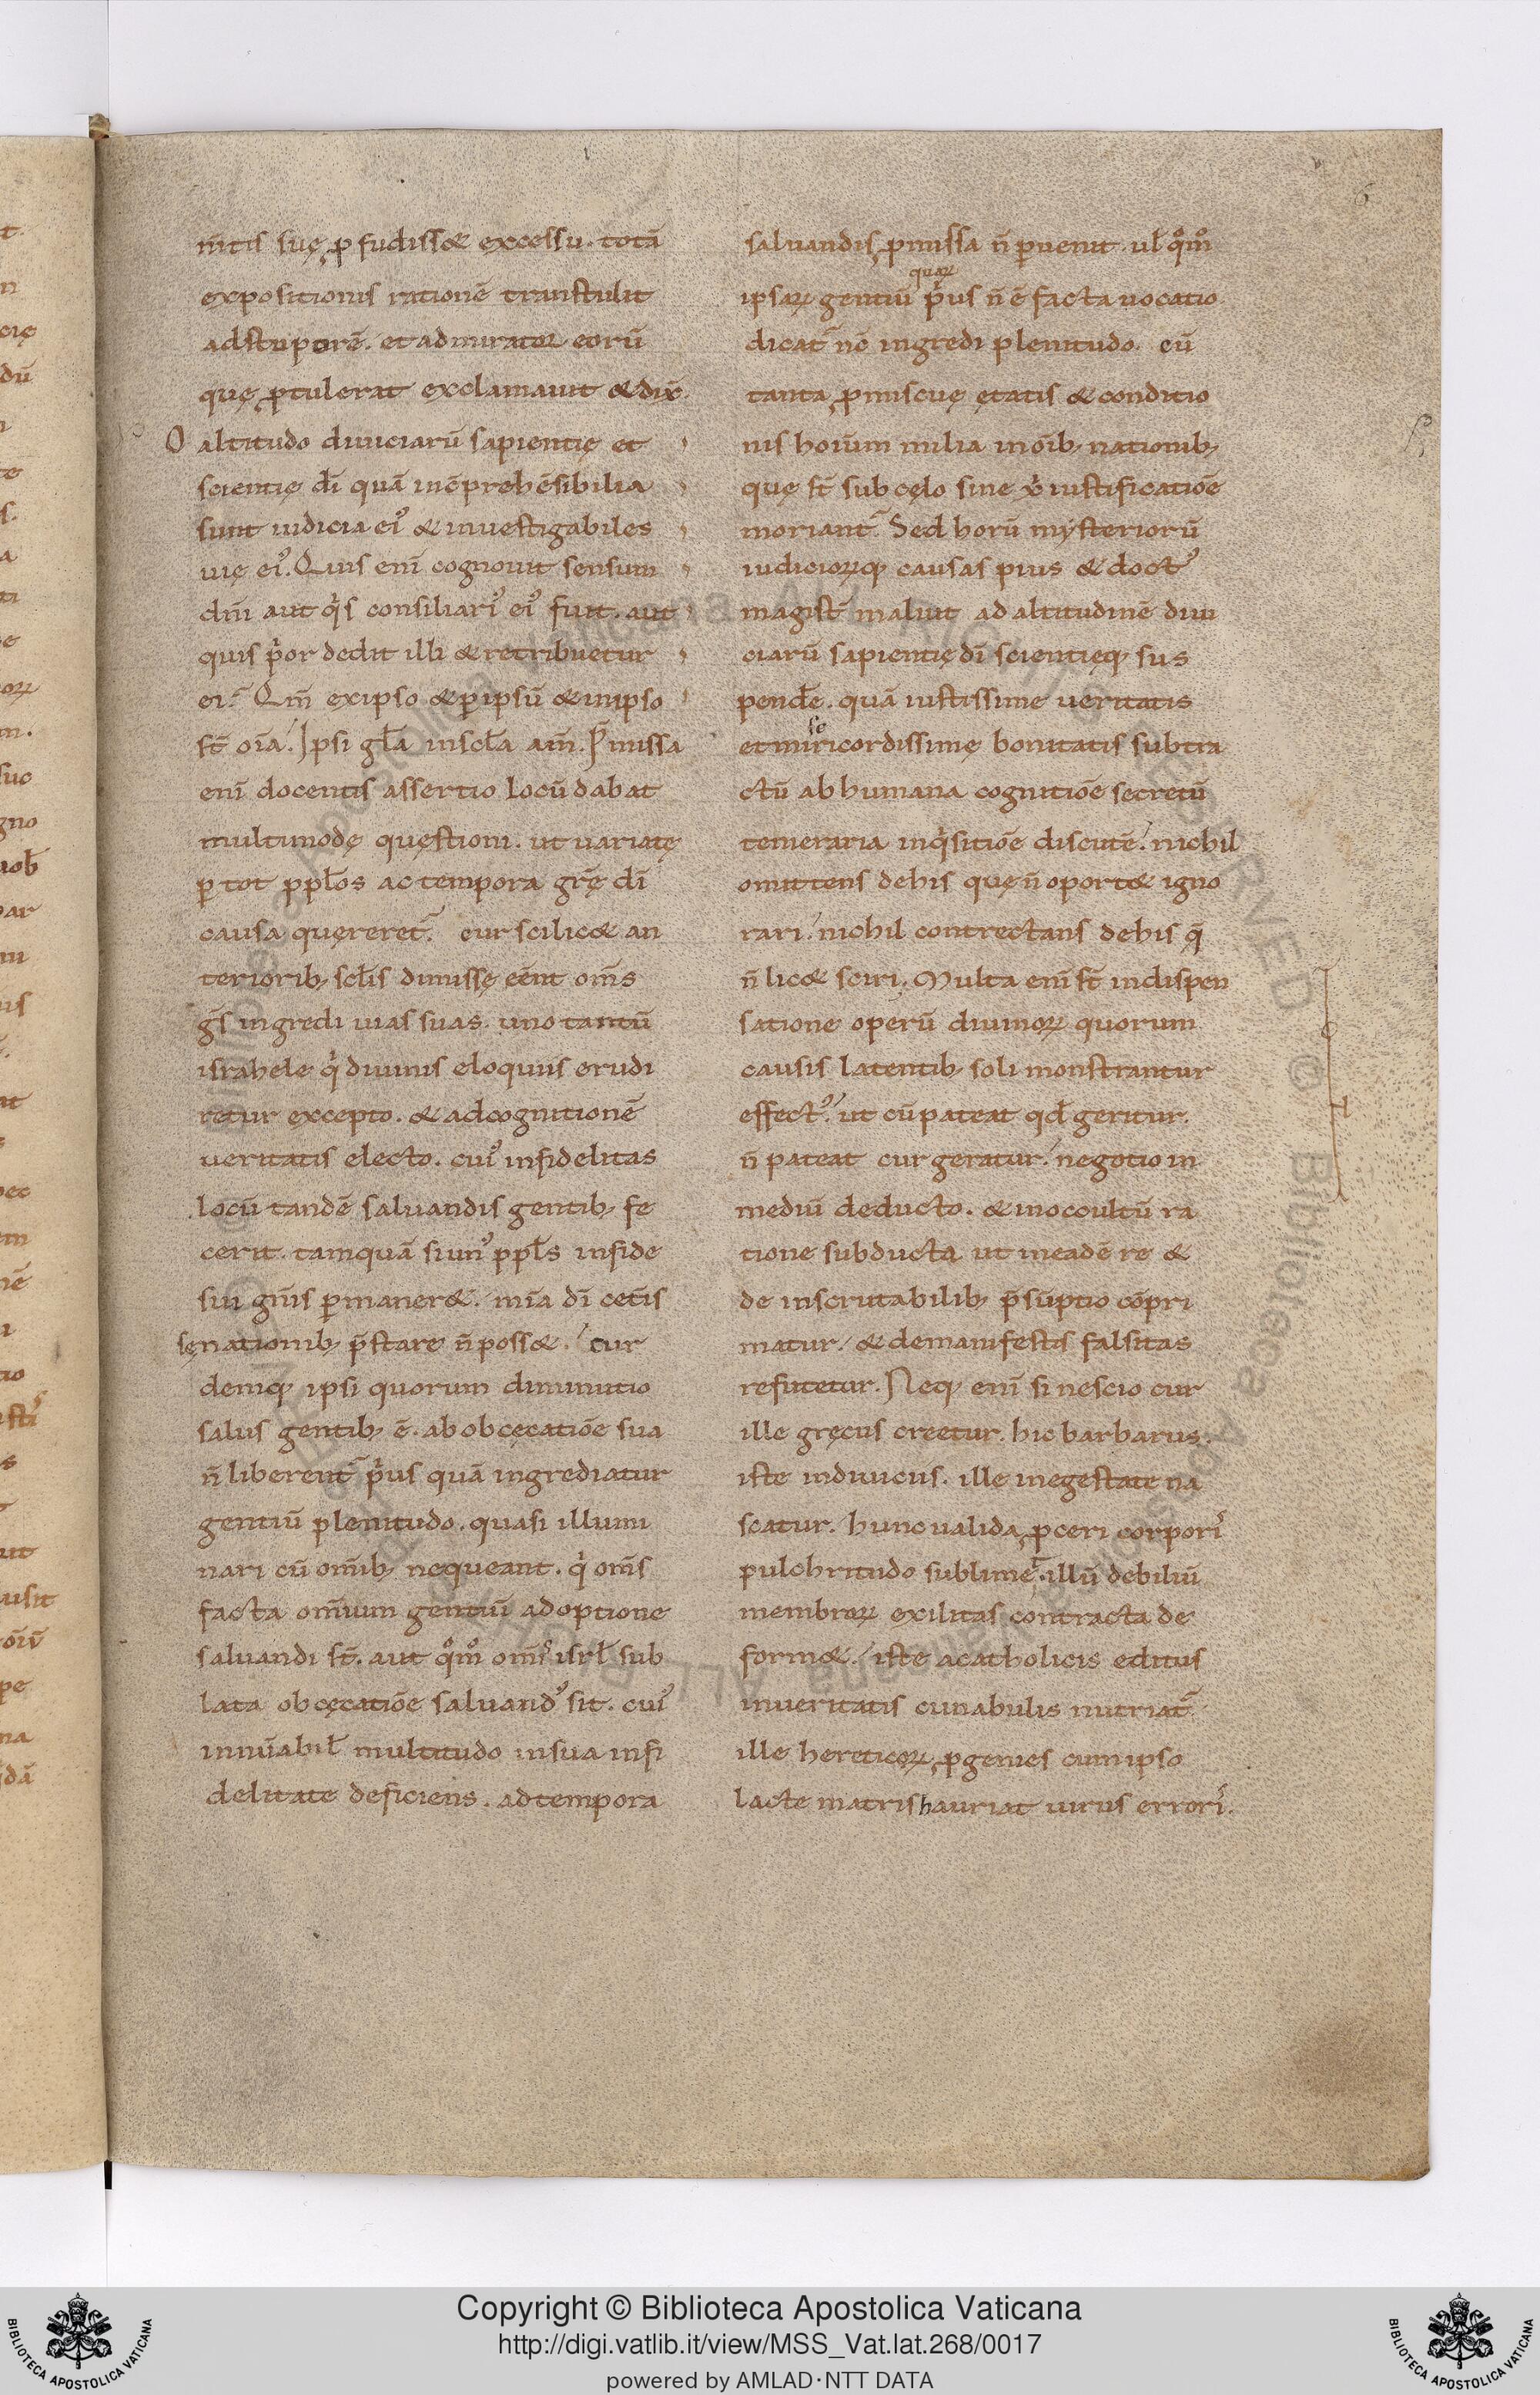 6
m̄tis suę ꝓfudiss& excessu. totā
expositionis rationē transtulit
adstuporē. et admiratoꝝ eorū
quę ꝓtulerat exclamauit & dix̄.
O altitudo diuiciarū sapientię et
scientię dī quā incōprehēsibilia
sunt iudicia ei᾽ & inuestigabiles
uię ei᾽. Quis enī cognouit sensum
dn̄i aut qͥs consiliari᾽ ei᾽ fuit. aut
quis pͥor dedit illi & retribuetur
ei. Qm̄ exipso & ꝑipsū & inipso
st̄ oīa. Ipsi gl̄a inscl̄a am̄. P̄missa
enī docentis assertio locū dabat
multimodę quęstioni. ut uariatę
ꝑ tot ppl̄os ac tempora grę̄ dī
causa quęreret᷑. cur scilic& an
teriorib; scl̄is dimissę eēnt om̄s
gs̄ ingredi uias suas. uno tantū
israhele qͥ diuinis eloquiis erudi
retur excepto. & adcognitionē
ueritatis electo. cui᾽ infidelitas
locū tandē saluandis gentib; fe
cerit. tamquā siun᾽ ppl̄s infide
sui gn̄is ꝑmaner&. mīa dī cet̄is
senationib; p̄stare n̄ poss&. cur
deniq; ipsi quorum diminutio
salus gentib; ē. ab obcęcatiōe sua
n̄ liberent᷑ pͥus quā ingrediatur
gentiū plenitudo. quasi illumi
nari cū om̄ib; nequeant. qͥ om̄s
facta omīum gentiū adoptione
saluandi st̄. aut qͦmͦ om̄is isrl̄ sub
lata obcęcatiōe saluand᾽ sit. cui᾽
innūabil̄ multitudo insua infi
delitate deficiens. adtempora
saluandis ꝓmissa n̄ ꝑuenit. ul̄ qͦmͦ
quaꝝ
ipsaꝝ gentiū pͥus n̄ ē facta uocatio
dicat᷑ nc̄ ingredi plenitudo. cū
tanta ꝓmiscuę ętatis & conditio
nis hoium milia inoīb; nationib;
quę st̄ subcęlo sine xp̄i iustificatiōe
moriant᷑. Sed horū mysteriorū
iudicioꝝq; causas pius & doct᾽
magist̄ maluit ad altitudinē diui
ciarū sapientię dī scientięq; sus
pendēe. quā iustissime ueritatis
se
et miricordissimę bonitatis subtra
ctū abhumana cognitiōe secretū
temeraria inqͥsitiōe discutē. nichil
omittens dehis quę n̄ oport& igno
rari. nichil contrectans dehis q̄
n̄ lic& sciri. Multa enī st̄ indispen
satione operū diuinoꝝ quorum
causis latentib; soli monstrantur
effect᾽. ut cū pateat qd̄ geritur.
n̄ pateat cur geratur. negotio in
mediū deducto. & inoccultū ra
tione subducta ut ineadē re &
de inscrutabilib; p̄sūptio cōpri
matur. & demanifestis falsitas
refutetur. Neq; enī si nescio cur
ille gręcus creetur. hic barbarus.
iste indiuicus. ille inegestate na
scatur. hunc ualida ꝓceri corporis
pulchritudo sublimet᷑. illū debiliū
membroꝝ exilitas contracta de
form&. iste acatholicis editus
inueritatis cunabulis nutriat᷑.
ille hereticoꝝ ꝓgenies cumipso
lacte matris hauriat uirus erroris.
Copyright © Biblioteca Apostolica Vaticana
http://digi.vatlib.it/view/MSS_Vat.lat.268/0017
powered by AMLAD·NTT DATA
BIBLIOTECA APOSTOLICA VATICANA
BIBLIOTECA APOSTOLICA VATICANA